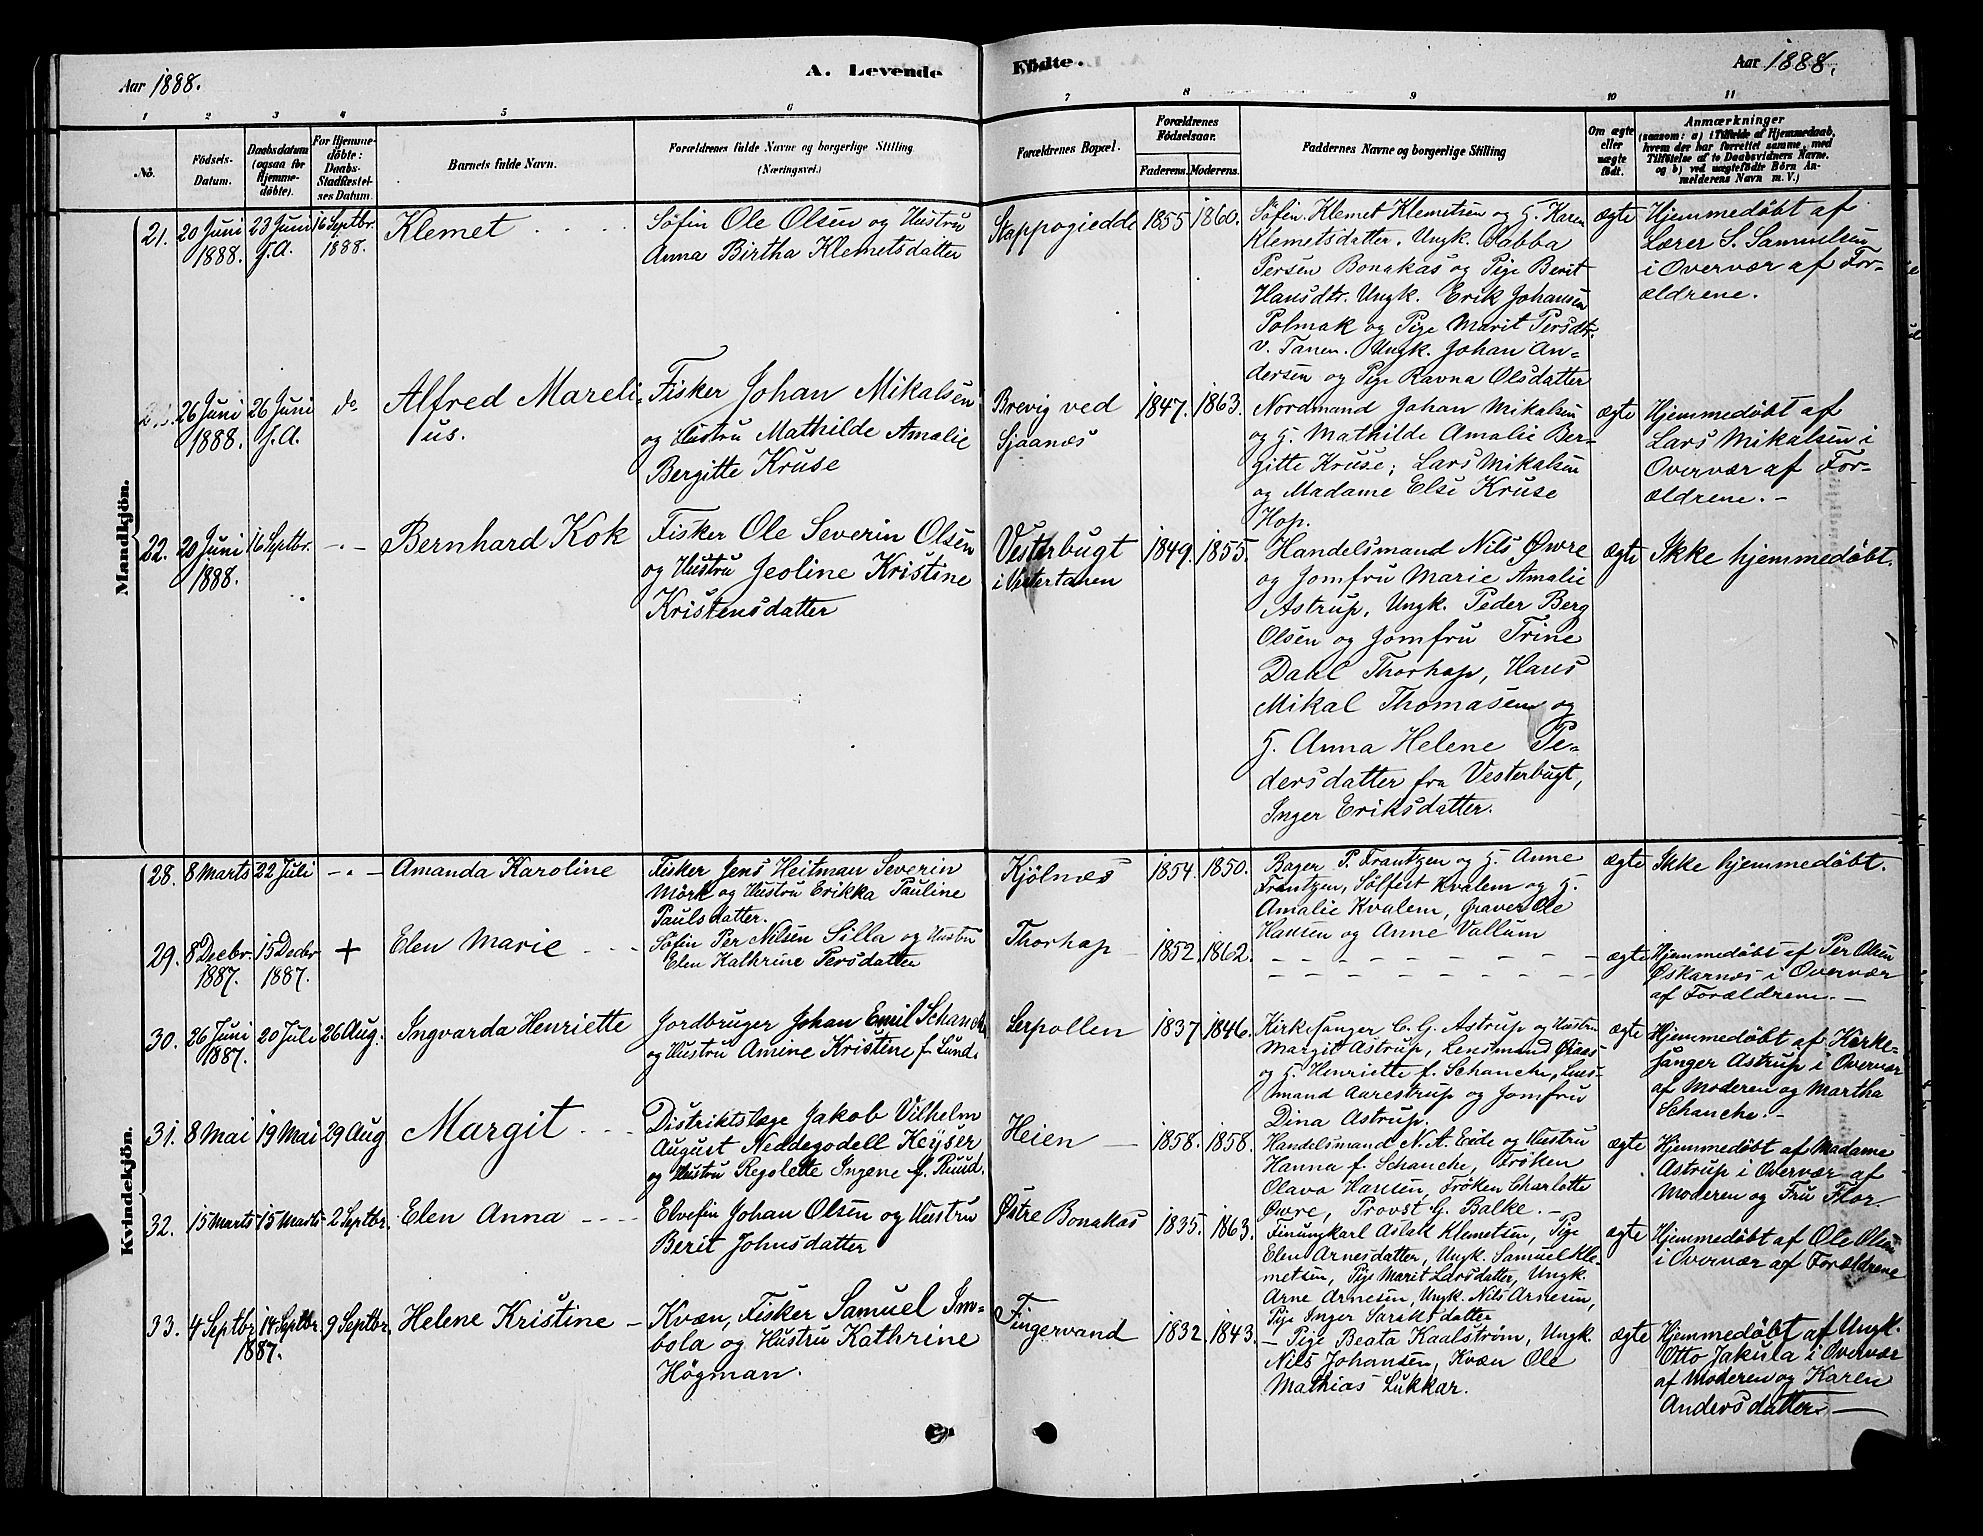 Aar 1888.
A. Levende
Fødte.
Aar 1888.
1 2 3 4 5 6 7 8 9 10 11
No.
Fødsels-
Datum.
Daabsdatum
(ogsaa for
Hjemme-
døbte).
For Hjemme-
døbte:
Daabs-
Stadfæstel-
ses Datum.
Barnets fulde Navn.
Forældrenes fulde Navne og borgerlige Stilling
(Næringsvei.)
Forældrenes Bopæl.
Forældrenes
Fødselsaar.
Faderens. Moderens.
Faddernes Navne og borgerlige Stilling
Om ægte
eller
uægte
født.
Anmærkninger
(saasom: a) i Tilfælde af Hjemmedaab,
hvem der har forrettet samme, med
Tilføielse af to Daabsvidners Navne.
og b) ved uægtefødte Børn An-
melderens Navn m. V.)
Mandkjön.
21.
20 Juni
1888.
23 Juni
s. A.
16 Septbr.
1888.
Klemet
Søfin Ole Olsen og Hustru
Anna Birtha Klemetsdatter
Stappogiedde
1855 1860.
Søfin. Klemet Klemetsen og H. Karen
Klemetsdatter. Ungk. Sabba
Persen Bonakas og Pige Berit
Hansdtr. Ungk. Erik Johansen
Polmak og Pige Marit Persdtr.
v. Tanen. Ungk. Johan An-
dersen og Pige Ravna Olsdatter
ægte
Hjemmedøbt af
Lærer S. Samuelsen
i Overvær af For-
ældrene.
26 Juni
1888.
26 Juni
s. A.
do
Alfred Mareli-
us.
Fisker Johan Mikalsen
og Hustru Mathilde Amalie
Bergitte Kruse
Brevig ved
Sjaanæs
1847. 1863.
Nordmand Johan Mikalsen
og H. Mathilde Amalie Ber-
gitte Kruse; Lars Mikalsen
og Madame Else Kruse
Hop.
ægte
Hjemmedøbt af
Lars Mikalsen i
Overvær af For-
ældrene. -
22.
20 Juni
1888.
16 Septbr.
- . -
Bernhard Kok
Fisker Ole Severin Olsen
og Hustru Jeoline Kristine
Kristensdatter
Vesterbugt
i Vestertanen
1849. 1855.
Handelsmand Nils Øwre
og Jomfru Marie Amalie
Astrup, Ungk. Peder Berg
Olsen og Jomfru Trine
Dahl Thorhop, Hans
Mikal Thomasen og
H. Anna Helene Pe-
dersdatter fra Vesterbugt,
Inger Eriksdatter.
ægte
Ikke hjemmedøbt.
Kvindekjön.
28.
8 Marts
22 Juli
- . -
Amanda Karoline
Fisker Jens Heitman Severin
Mörk og Hustru Erikka Pauline
Paulsdatter.
Kjölnæs
1854. 1850.
Bager P. Frantzen og H. Anne
Frantzen, Sølfest Kvalem og H.
Amalie Kvalem, Graver Ole
Hansen og Anne Vallum
ægte
Ikke hjemmedøbt.
29.
8 Decbr.
1887.
15 Decbr
1887.
+
Elen Marie
Søfin Per Nilsen Silla og Hustru
Elen Kathrine Persdatter
Thorhop
1852. 1862.
- - - - - - - -
ægte
Hjemmedøbt af Per Olsen
Øskarnæs i Overvær
af Forældrene. -
30.
26 Juni
1887.
20 Juli
26 Aug.
Ingvarda Henriette
Jordbruger Johan Emil Schanche
og Hustru Amine Kristine f. Lund.
Lerpollen
1837 1846.
Kirkesanger C. G. Astrup og Hustru
Margit Astrup, Lensmand Øraas
og H. Henriette f. Schanche, Lens-
mand Aarestrup og Jomfru
Dina Astrup.
ægte
Hjemmedøbt af Kirke-
sanger Astrup i Overvær
af Moderen og Martha
Schanche. -
31.
8 Mai
19 Mai
29 Aug
Margit
Distriktslæge Jakob Vilhelm
August Neddegodell Keyser
og Hustru Regolette Ingene f. Ruud.
Heien
1858. 1858.
Handelsmand N. A. Eide og Hustru
Hanna f. Schanche, Frøken
Olava Hansen, Frøken Charlotte
Øwre, Provst G. Balke. -
ægte
Hjemmedøbt af Madame
Astrup i Overvær af
Moderen og Fru Flor.
32.
15 Marts
15 Marts
2 Septbr.
Elen Anna
Elvefin Johan Olsen og Hustru
Berit Johnsdatter
Østre Bonakas
1835. 1863.
Finungkarl Aslak Klemetsen, Pige
Elen Arnesdatter, Ungk. Samuel Kle-
metsen, Pige Marit Larsdatter, Ungk.
Arne Arnesen, Ungk. Nils Arnesen,
Pige Inger Sariktdatter
ægte
Hjemmedøbt af Ole Olsen
i Overvær af Forældrene
33.
4 Septbr.
1887.
14 Septbr.
9 Septbr.
Helene Kristine
Kvæn, Fisker Samuel Im-
bola og Hustru Kathrine
Högman.
Fingervand
1832 1843.
- Pige Beata Kaalstrøm, Ungk.
Nils Johansen, Kvæn Ole
Mathias Lukkar.
ægte
Hjemmedøbt af Ungk.
Otto Jakula i Overvær
af Moderen og Karen
Andersdatter. -